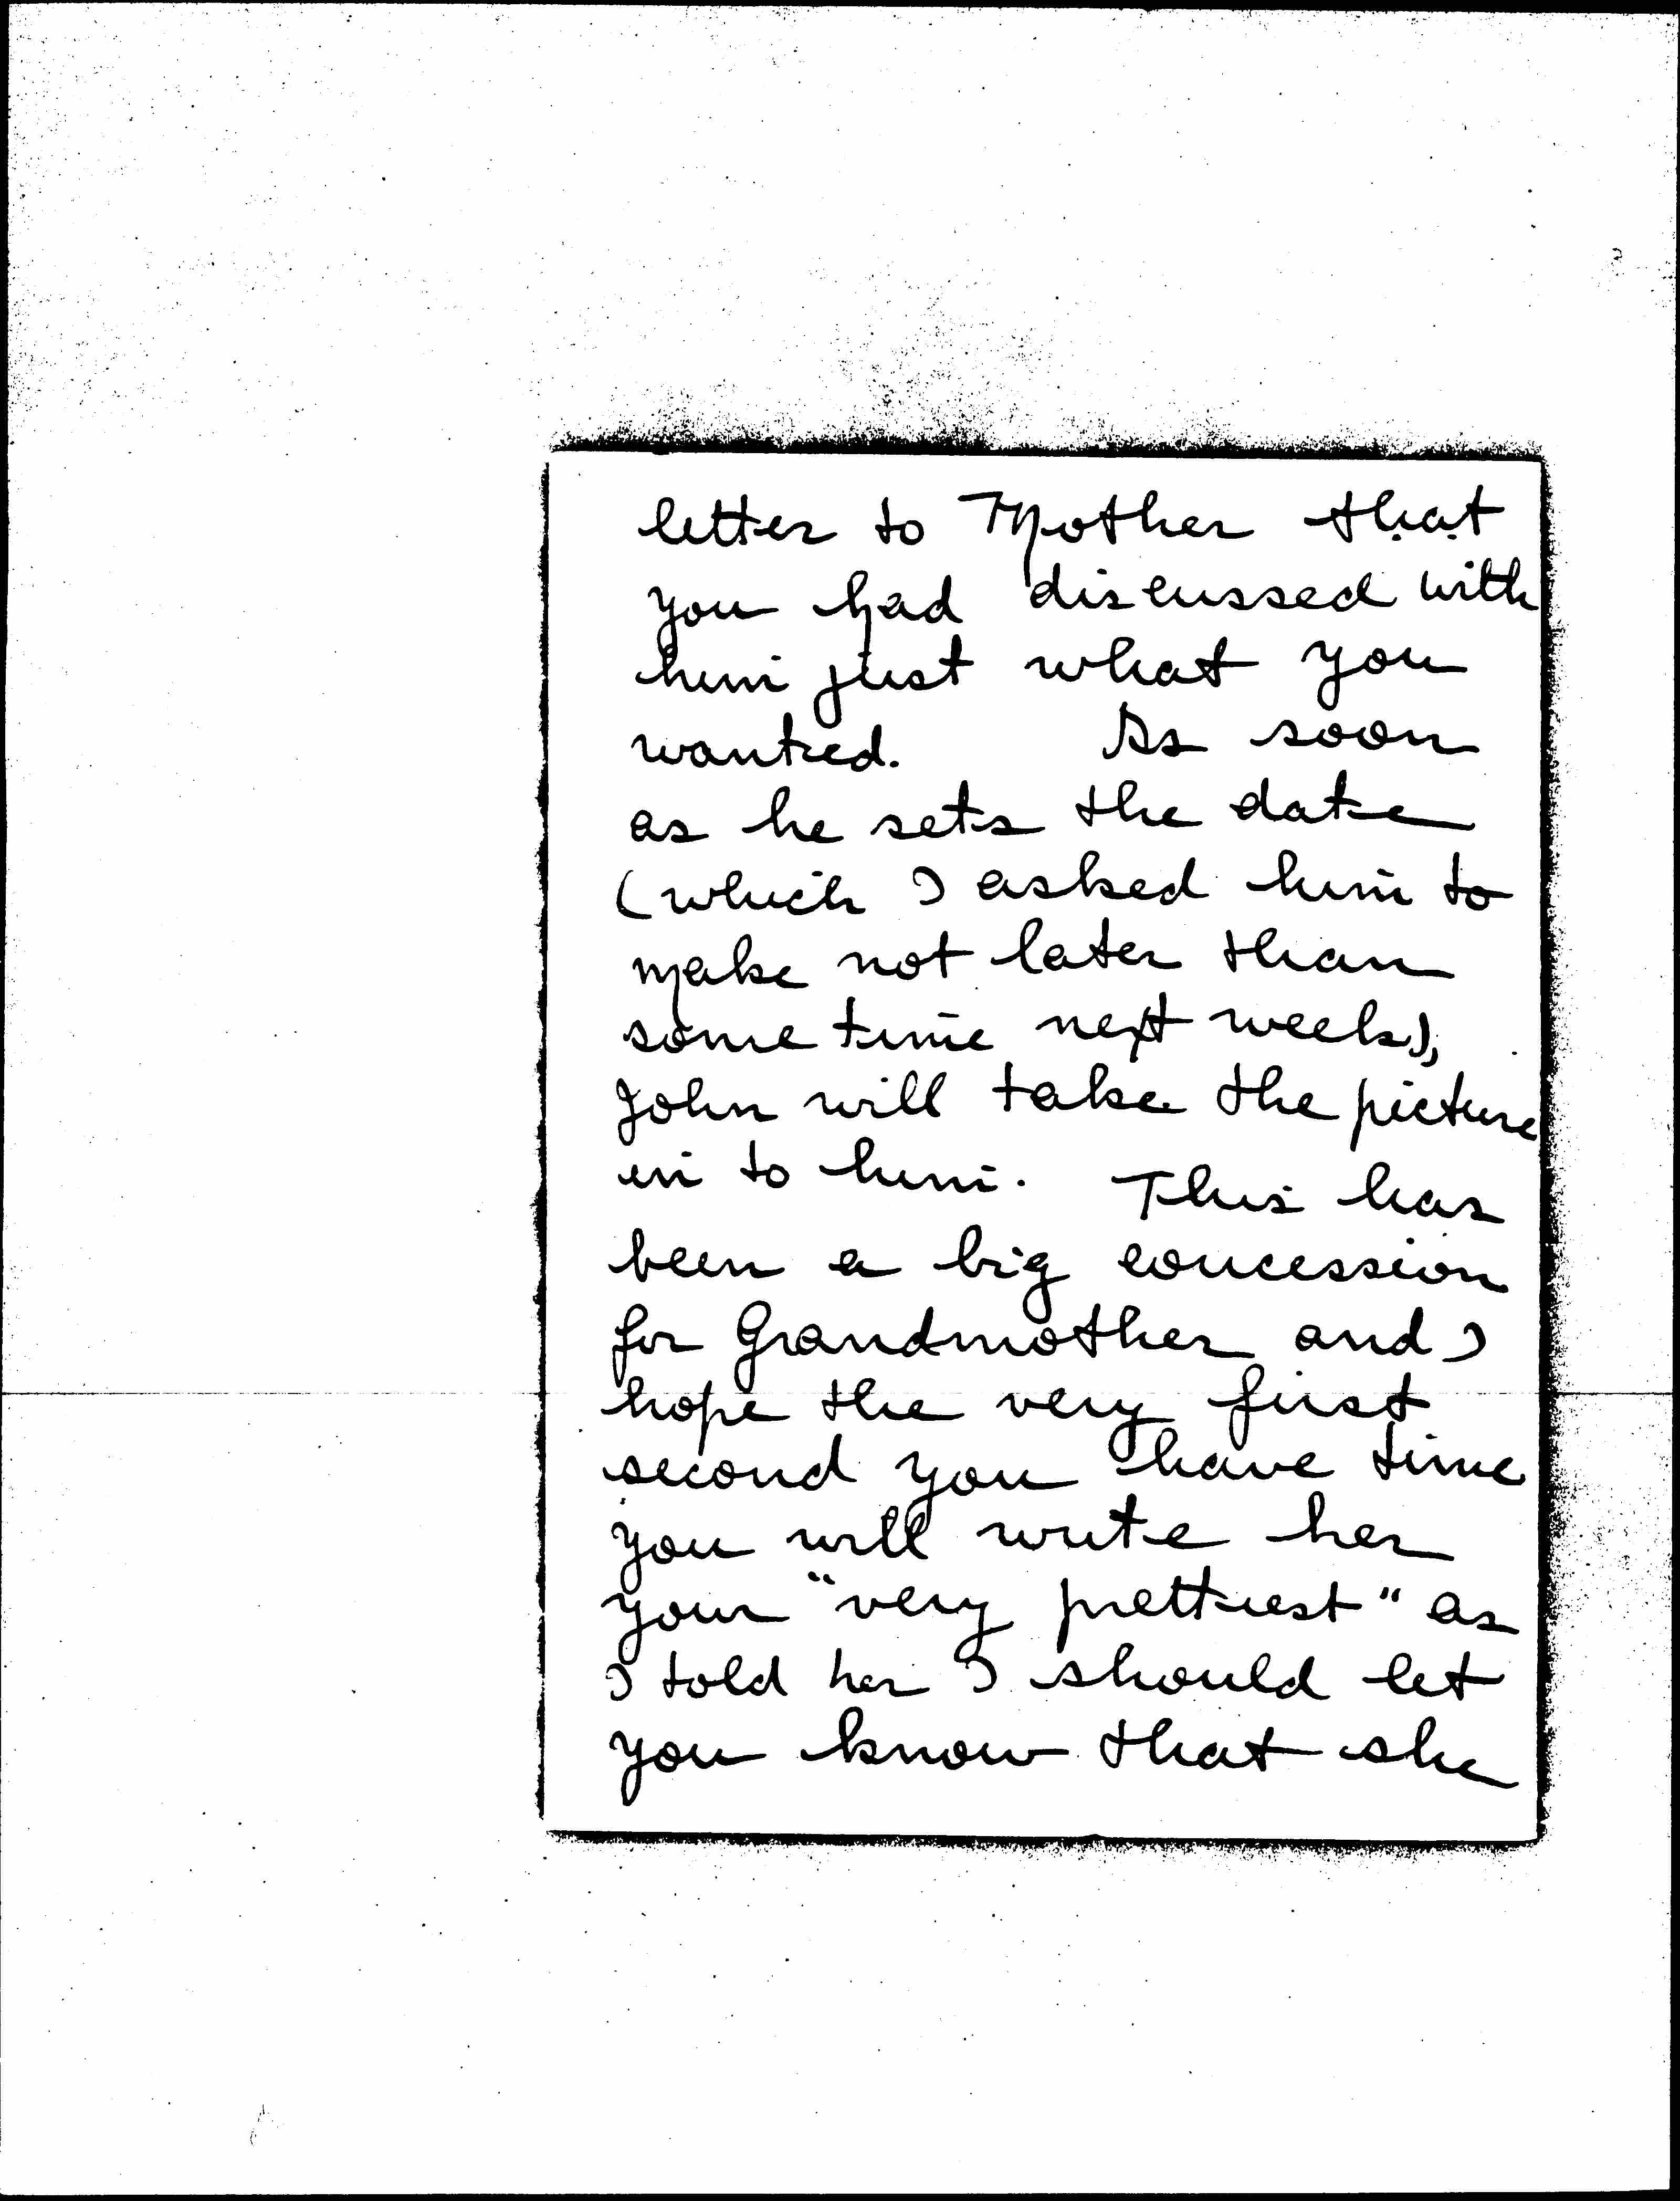 letter to Mother that
you had discussed with
him just what you
wanted. As soon
as he sets the date
(which I asked him to
make not later than
some time next week),
John will take the picture
in to him. This has
been a big concession
for Grandmother and I
hope the very first
second you have time
you will write her
your "very prettiest" as
I told her I should let
you know that she